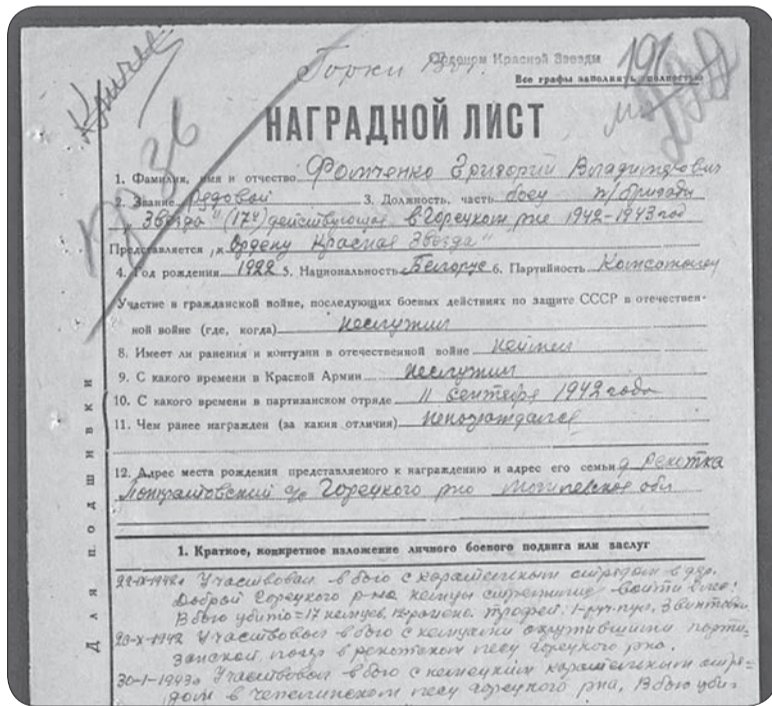 Кричев
Горки
Орденом Красной Звезды
191
Все графы заполнить полностью
НАГРАДНОЙ ЛИСТ
36
1. Фамилия, имя и отчество Фомченко Григорий Владимирович
2. Звание Рядовой 3. Должность, часть боец п/бригады
„Звезда" (17я) действующая в Горецком рне 1942-1943 год
Представляется „к Ордену Красная Звезда"
4. Год рождения 1922 5. Национальность Белорус 6. Партийность Комсомолец
Участие в гражданской войне, последующих боевых действиях по защите СССР в отечествен-
ной войне (где, когда) неслужил
8. Имеет ли ранения и контузии в отечественной войне неимел
9. С какого времени в Красной Армии неслужил
10. С какого времени в партизанском отряде 11 сентября 1942 года
11. Чем ранее награжден (за какия отличия) ненограждался
12. Адрес места рождения представляемого к награждению и адрес его семьи д Рекотка
с/с Горецкого рно Могилевская обл
Для подшивки
1. Краткое, конкретное изложение личного боевого подвига или заслуг
Участвовал в бою с карательным отрядом в дер.
Доброй Горецкого р-на немцы
В бою убито=17 немцев, трофей: 1-руч.пул, 3 винтовки
Участвовал в бою с немцами окружившими парти-
занский лагерь в рекотском лесу Горецкого рна.
30-1-1943г Участвовал в бою с немецким карательным отря-
дом в лесу Горецкого рна, В бою